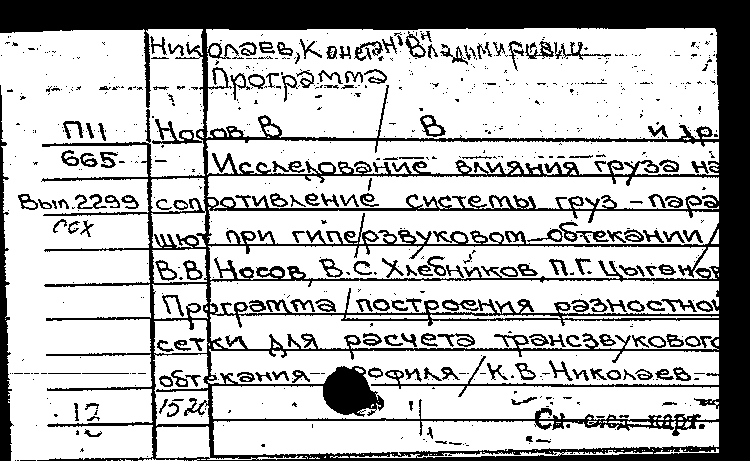 Николаев, Константин Владимирович
Программа
П11 Носов, В В и др.
665 – Исследование влияния груза на
Вып.2299 сопротивление системы груз – пара
осх шют при гиперзвуковом обтекании /
В.В. Носов, В.С. Хлебников, П.Г. Цыганов
Программа построения разностной
сетки для расчета трансзвукового
обтекания профиля / К.В. Николаев.
12 1520
См. след. карт.